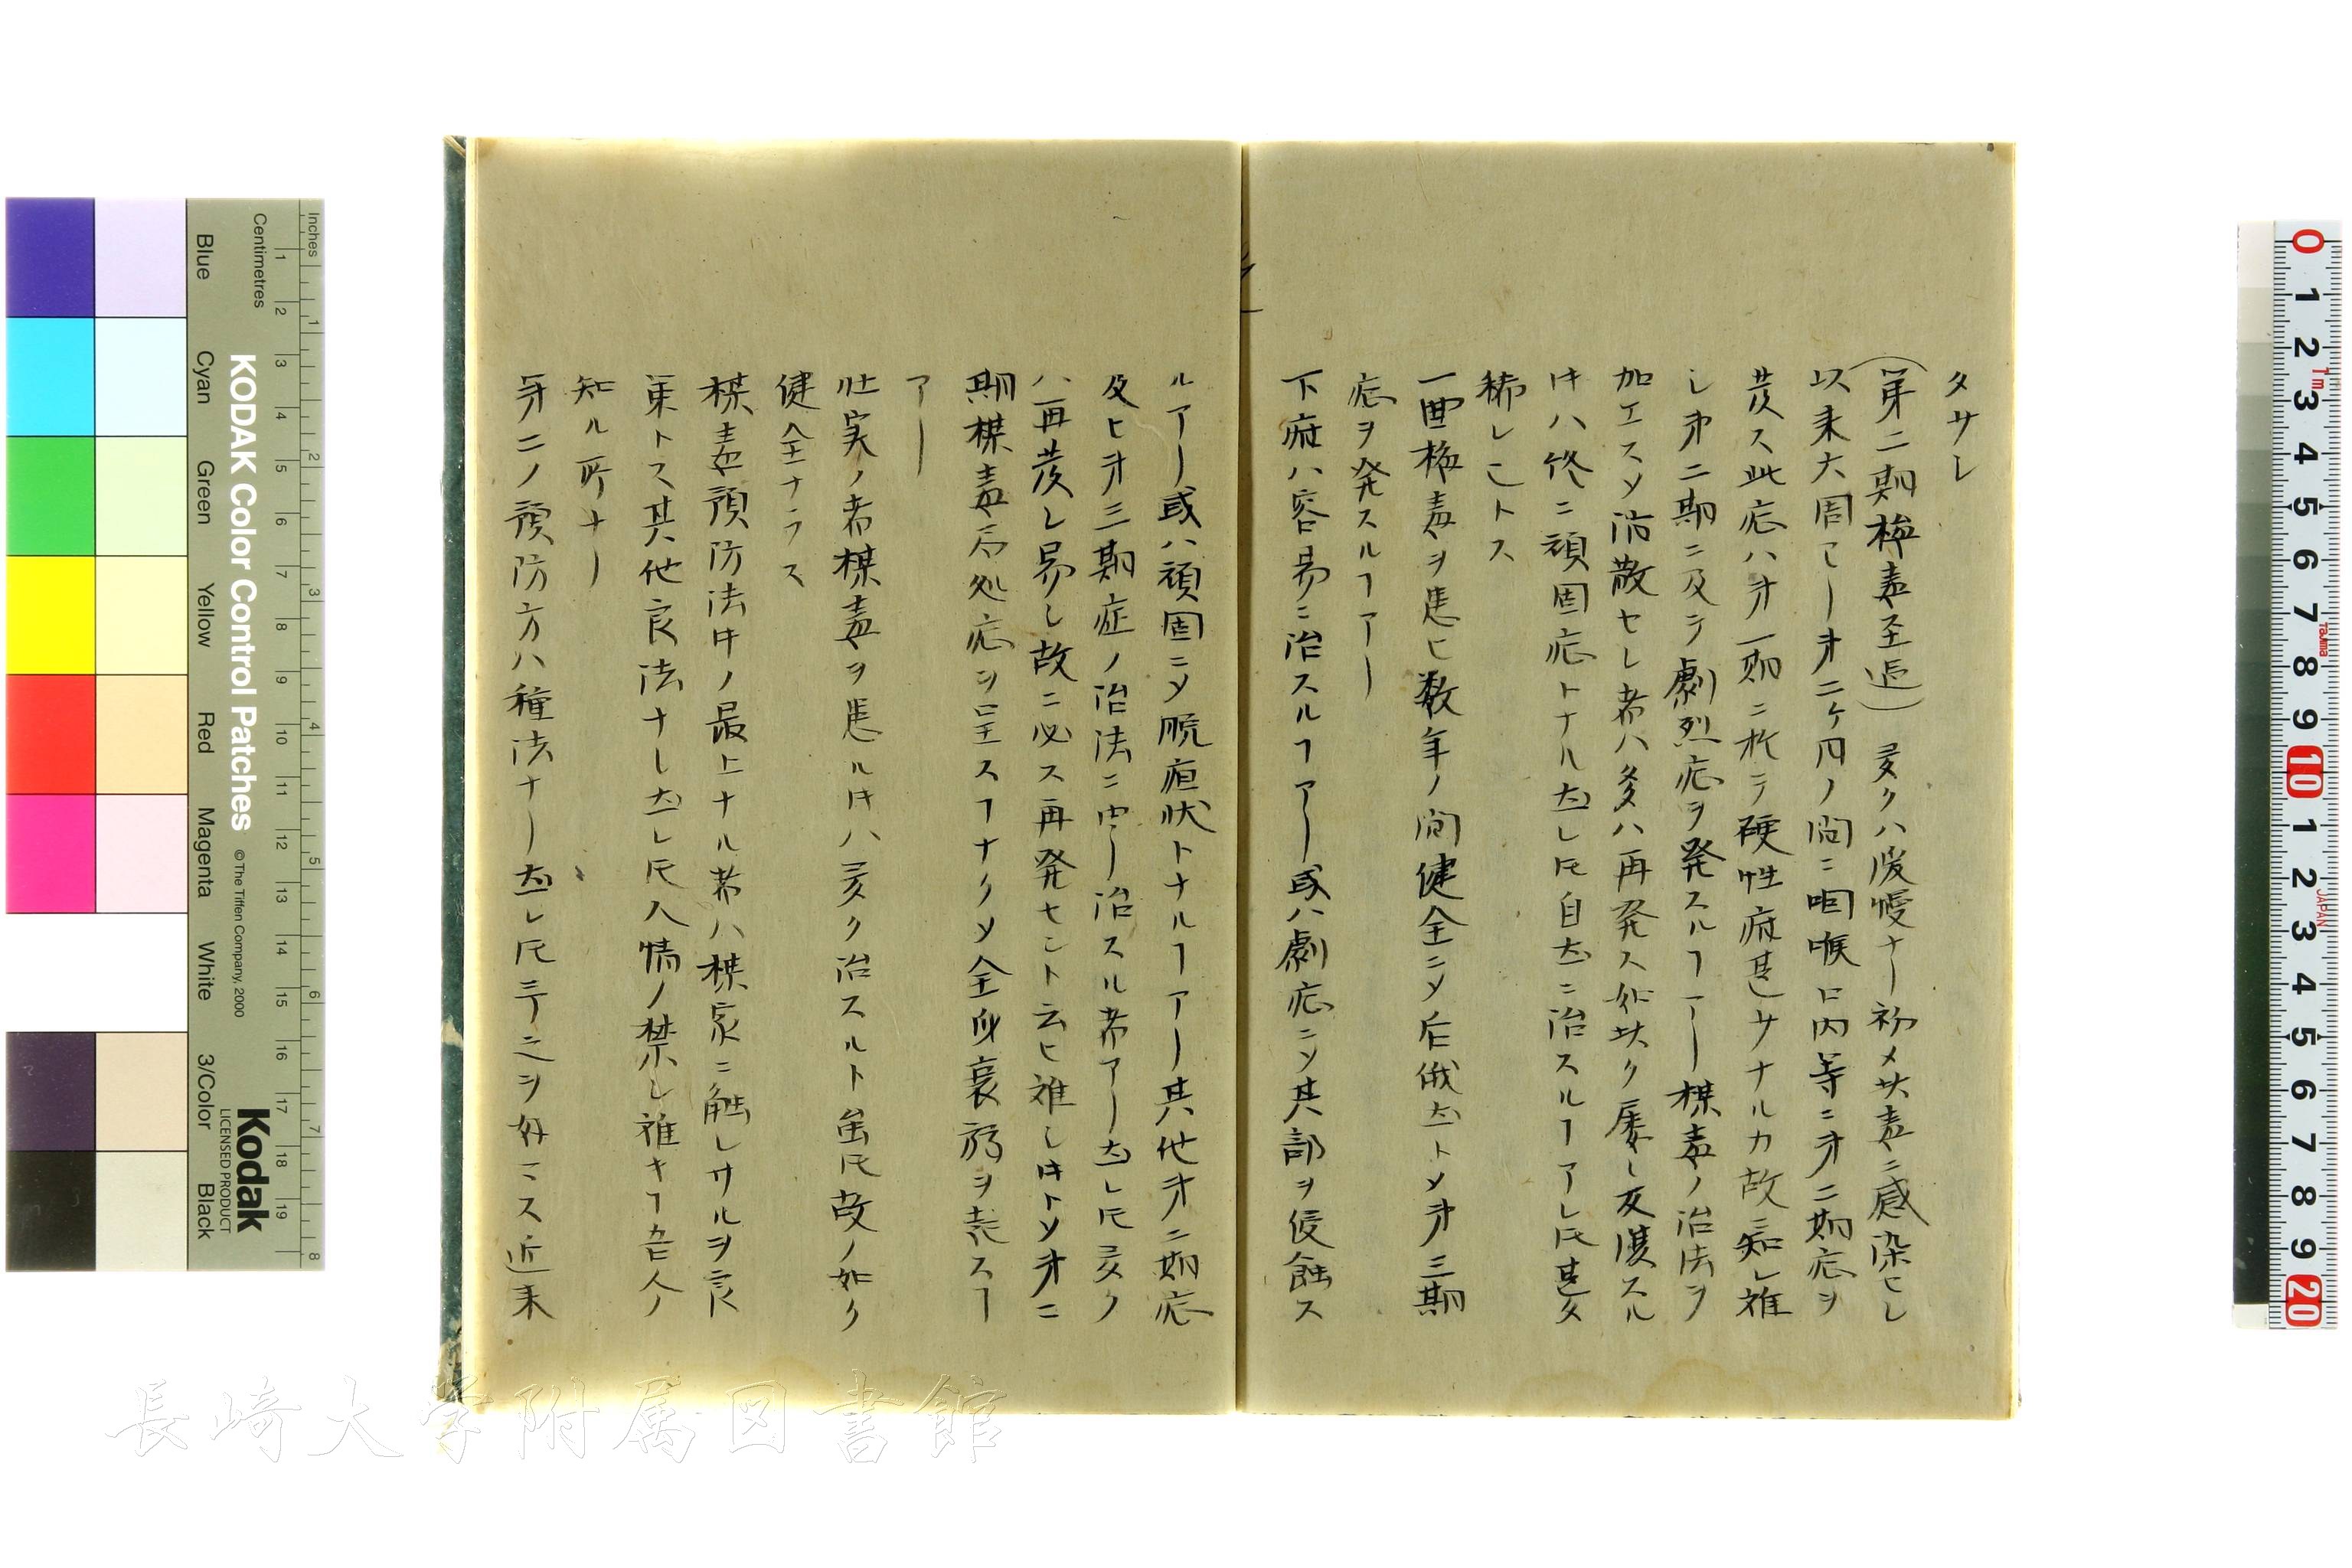 タサレ
(第二期梅毒至追) 多クハ緩慢ナリ初メ其毒ニ感染セシ
以来大周ヿ一才二ケ月ノ間ニ咽喉口内等ニ才二期症ヲ
発ス此症ハ才一期ニ於テ硬性疳甚シサナルカ故ニ知レ難
シ才二期ニ及テ劇烈症ヲ発スルヿアリ楳毒ノ治法ヲ
加エスメ消散セシ者ハ多ハ再発ス如此ク屡シ反復スル
片ハ終ニ頑固症トナル然レ𪜈自然ニ治スルヿアレ𪜈甚タ
稀レトス
一回梅毒ヲ患ヒ数年ノ間健全ニメ后俄然トメ才三期
症ヲ発スルヿアリ
下疳ハ容易ニ治スルヿアリ或ハ劇症ニメ其部ヲ侵蝕ス
ルアリ或ハ頑固ニメ脱疽状トナルヿアリ其他才二期症
及ヒ才三期症ノ治法ニ由リ治スル者アリ然レ𪜈多ク
ハ再発シ易シ故ニ必ス再発セント云ヒ難シ片トメ才二
期楳毒局処症ヲ呈スヿナクメ全身衰弱ヲ来スヿ
アリ
壮実ノ者楳毒ヲ患ル片ハ多ク治スルト雖𪜈故ノ如ク
健全ナラス
楳毒預防法中ノ最上ナル者ハ楳家ニ触レサルヲ良
策トス其他良法ナシ然レ𪜈人情ノ禁シ難キヿ吾人ノ
知ル所ナリ
才二ノ預防方ハ種法ナリ然レ𪜈三丁之ヲ外ニス近来
Inches
Centimetres
KODAK Color Control Patches
© The Tiffen Company, 2000
Kodak
LICENSED PRODUCT
Blue
Cyan
Green
Yellow
Red
Magenta
White
3/Color
Black
1 2 3 4 5 6 7 8 9 10 11 12 13 14 15 16 17 18 19
1 2 3 4 5 6 7 8
0 1 2 3 4 5 6 7 8 9 10 1 2 3 4 5 6 7 8 9 20
1m
Tajima
JAPAN
長崎大学附属図書館